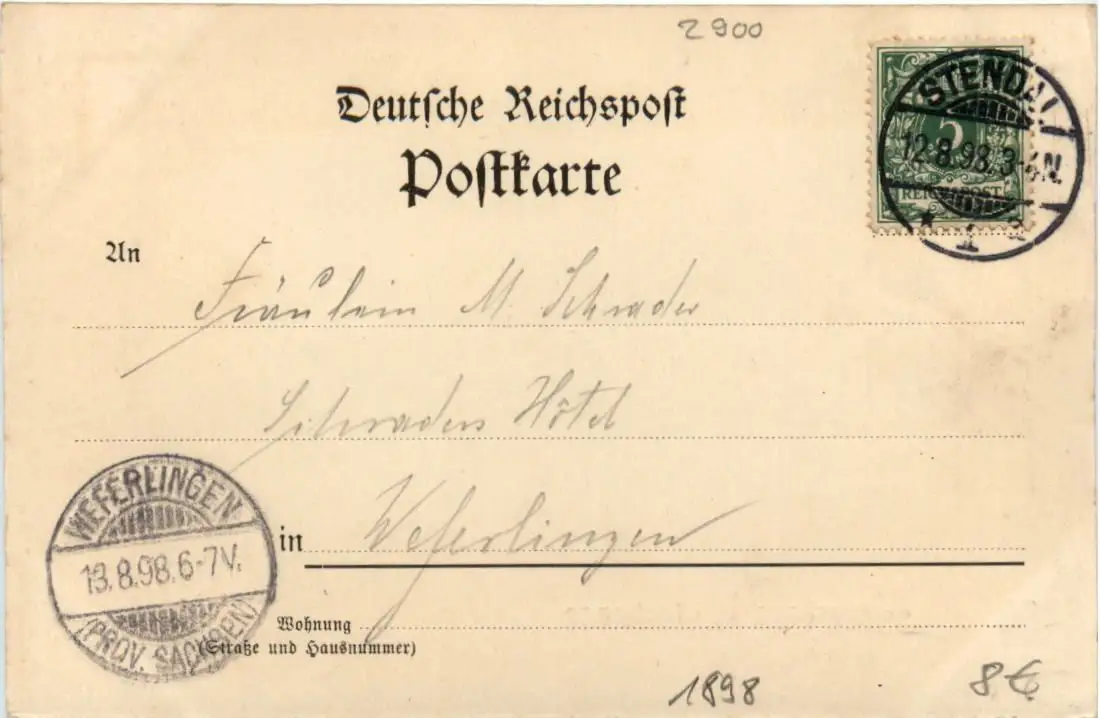 2900
Deutsche Reichspost
Postkarte
STENDAL
12.8.98.3-4N.
* 1 a
5
REICHSPOST
An
Fräulein M. Schrader
Schraders Hôtel
in Weferlingen
WEFERLINGEN
13.8.98.6-7V.
(PROV. SACHSEN)
Wohnung
(Straße und Hausnummer)
1898
8€